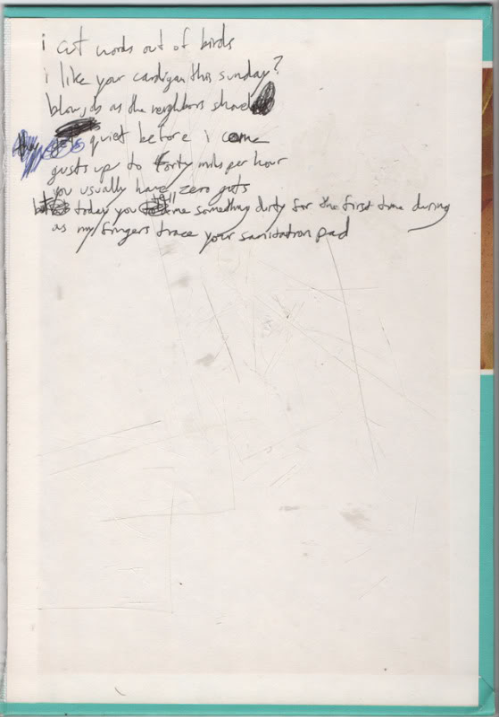 i cut words out of birds
i like your cardigan this sunday?
blowjob as the neighbors
quiet before i come
gusts up to forty miles per hour
you usually have zero guts
today you me something dirty for the first time during
as my fingers trace your sanitation pad